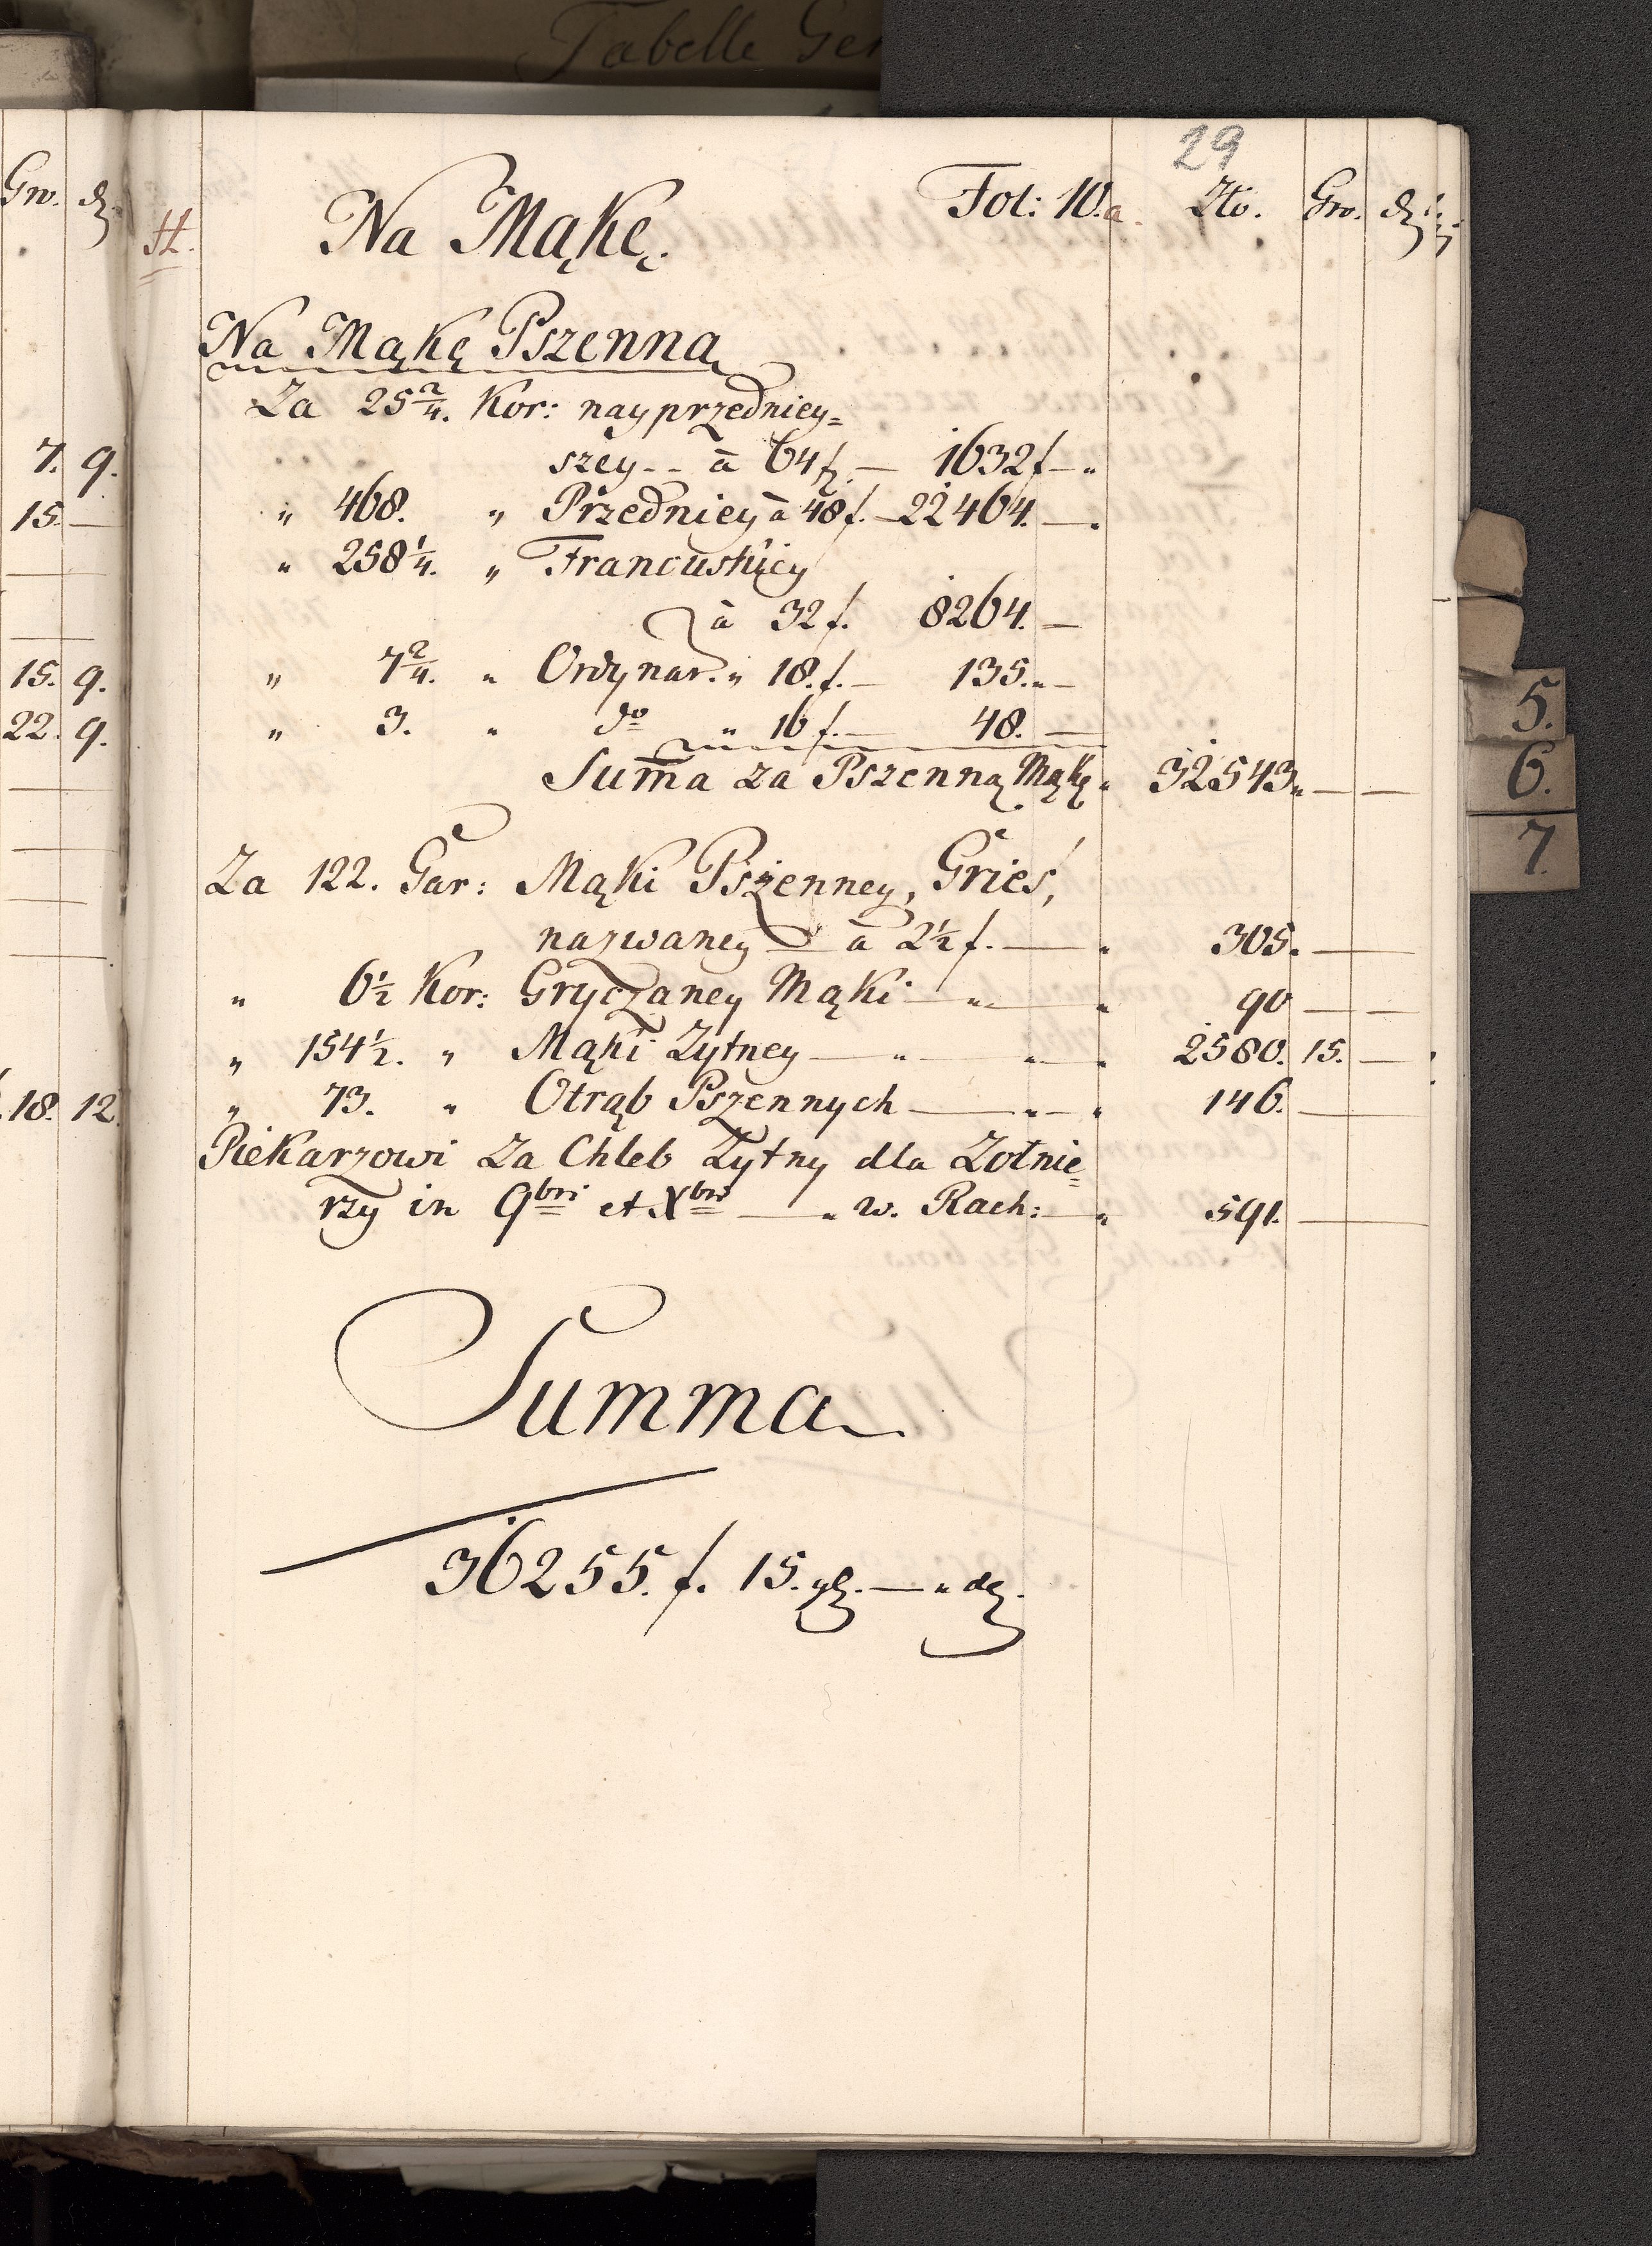 Tabelle Gen
29
Gro. d.
H.
Na Mąkę.
Fol: 10.a.
Zło. Gro. d.
Na Mąkę Pszenną
Za 25 2/4. Kor: nayprzedniey=
szey - - à 64 f. — 1632 f — "
" 468. " Przedniey à 48 f. — 22464. —.
" 258 1/4. " Francuskiey
à 32 f. 8264. —
" 7 2/4. " Ordynar. " 18. f. — 135. " —
" 3. " do " 16 f. — 48. —
Sum̃a za Pszenną Mąkę " 32543 " — —
Za 122. Gar: Mąki Pszenney, Gries,
nazwaney — à 2 1/2 f. — " 305. —
" 6 1/2 Kor: Gryczaney Mąki — " — " 90 — —
" 154 1/2. " Mąki Zytney — " — " — " 2580. 15. —
" 73. " Otrąb Pszennych — " — " 146. —
Piekarzowi Za Chleb Zytny dla Zołnie=
rzy in 9bri et Xbri — " w. Rach: — " 591. —
Summa
36255. f. 15. gl. — " d.
7. 9.
15. —
15. 9.
22. 9.
18. 12
5.
6.
7.